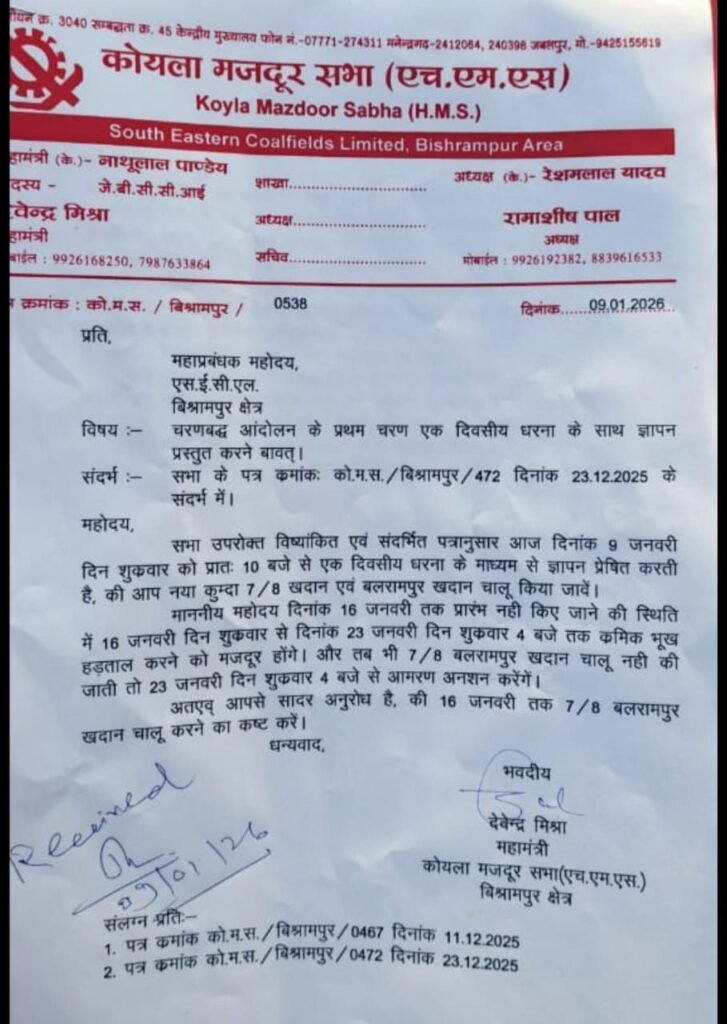 पंजीयन क्र. 3040 सम्बद्धता क्र. 45 केन्द्रीय मुख्यालय फोन नं.-07771-274311 मनेन्द्रगढ-2412064, 240398 जबलपुर, मो.-9425155619
कोयला मजदूर सभा (एच.एम.एस)
Koyla Mazdoor Sabha (H.M.S.)
South Eastern Coalfields Limited, Bishrampur Area
हामंत्री (के.)- नाथूलाल पाण्डेय
दस्य - जे.बी.सी.सी.आई
वेन्द्र मिश्रा
हामंत्री
बाईल : 9926168250, 7987633864
शाखा
अध्यक्ष
सचिव
अध्यक्ष (के.)- रेशमलाल यादव
रामाशीष पाल
अध्यक्ष
मोबाईल : 9926192382, 8839616533
क्रमांक : को.म.स. / बिश्रामपुर / 0538
दिनांक 09.01.2026
प्रति,
महाप्रबंधक महोदय,
एस.ई.सी.एल.
बिश्रामपुर क्षेत्र
विषय :– चरणबद्ध आंदोलन के प्रथम चरण एक दिवसीय धरना के साथ ज्ञापन
प्रस्तुत करने बावत्।
संदर्भ :– सभा के पत्र क्रमांकः को.म.स./बिश्रामपुर/472 दिनांक 23.12.2025 के
संदर्भ में।
महोदय,
सभा उपरोक्त विष्यांकित एवं संदर्भित पत्रानुसार आज दिनांक 9 जनवरी
दिन शुक्रवार को प्रातः 10 बजे से एक दिवसीय धरना के माध्यम से ज्ञापन प्रेषित करती
है, की आप नया कुम्दा 7/8 खदान एवं बलरामपुर खदान चालू किया जावें।
माननीय महोदय दिनांक 16 जनवरी तक प्रारंभ नही किए जाने की स्थिति
में 16 जनवरी दिन शुक्रवार से दिनांक 23 जनवरी दिन शुक्रवार 4 बजे तक क्रमिक भूख
हड़ताल करने को मजदूर होंगे। और तब भी 7/8 बलरामपुर खदान चालू नही की
जाती तो 23 जनवरी दिन शुक्रवार 4 बजे से आमरण अनशन करेंगें।
अतएव् आपसे सादर अनुरोध है, की 16 जनवरी तक 7/8 बलरामपुर
खदान चालू करने का कष्ट करें।
धन्यवाद,
भवदीय
देवेन्द्र मिश्रा
महामंत्री
कोयला मजदूर सभा(एच.एम.एस.)
बिश्रामपुर क्षेत्र
Received
09/01/26
संलग्न प्रतिः–
1. पत्र क्रमांक को.म.स./बिश्रामपुर/0467 दिनांक 11.12.2025
2. पत्र क्रमांक को.म.स./बिश्रामपुर/0472 दिनांक 23.12.2025